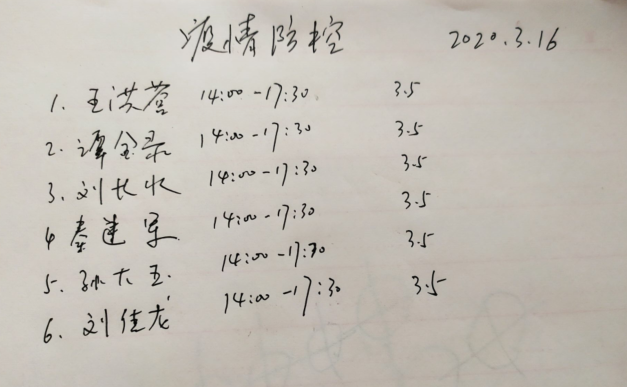 疫情防控 2020.3.16
1. 王洪营 14:00-17:30 3.5
2. 谭金录 14:00-17:30 3.5
3. 刘长收 14:00-17:30 3.5
4 秦建军 14:00-17:30 3.5
5. 孙大五. 14:00-17:30 3.5
6. 刘佳龙 14:00-17:30 3.5